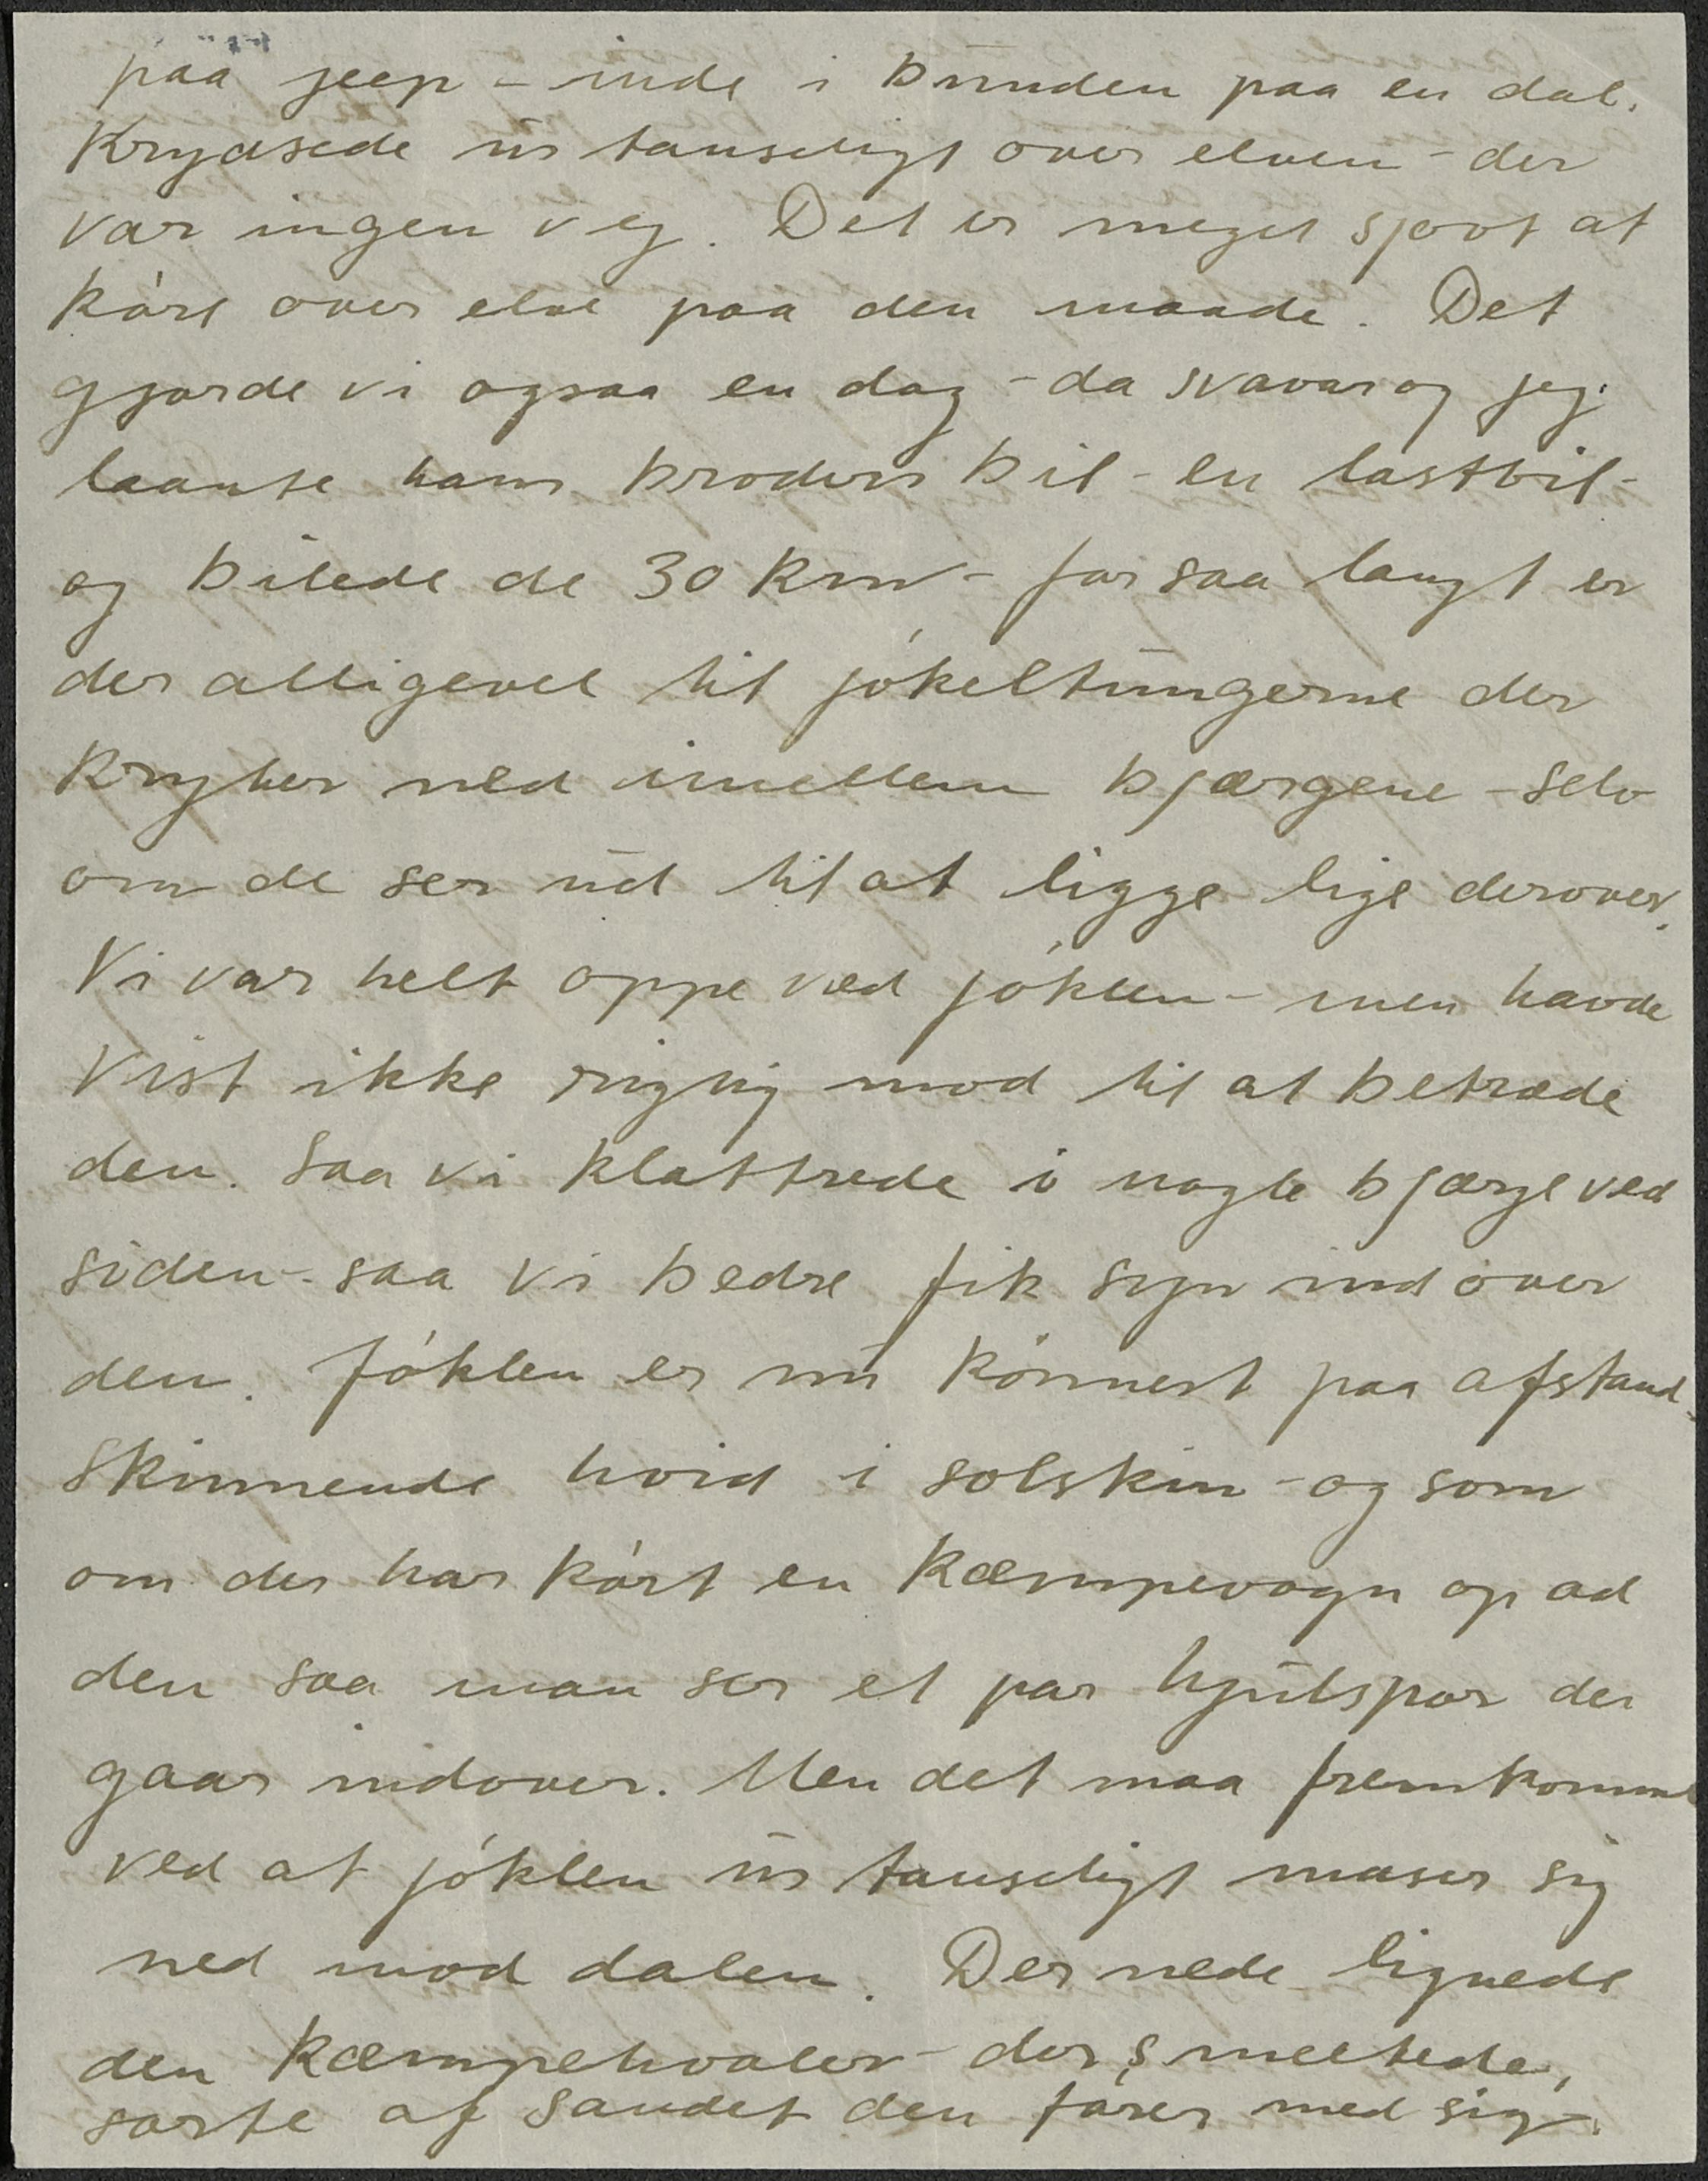 paa jeep - inde i bunden paa en dal.
Krydsede utanseligt over elven - der
var ingen vej. Det er meget sjovt at
kóre over elve paa den maade. Det
gjorde vi ogsaa en dag - da Svavar og jeg
laante hans broders bil - en lastbil -
og bilede de 30 km - for saa langt er
der alligevel til jókeltungerne der
kryber ned imellem bjærgene - selv
om de ser ud til at ligge lige derover.
Vi var helt oppe ved jóklen - men havde
vist ikke rigtig mod til at betræde
den. Saa vi klattrede i nogle bjærge ved
siden - saa vi bedre fik syn ind over
den. Jóklen er nu kónnest paa afstand -
skinnende hvid i solskin - og som
om der har kórt en kæmpevogn op ad
den saa man ser et par hjulspor der
gaar indover. Men det maa fremkomme
ved at jóklen utanseligt maser sig
ned mod dalen. Der nede lignede
den kæmpehvaler - der smeltede,
sorte af sandet den fórer med sig.